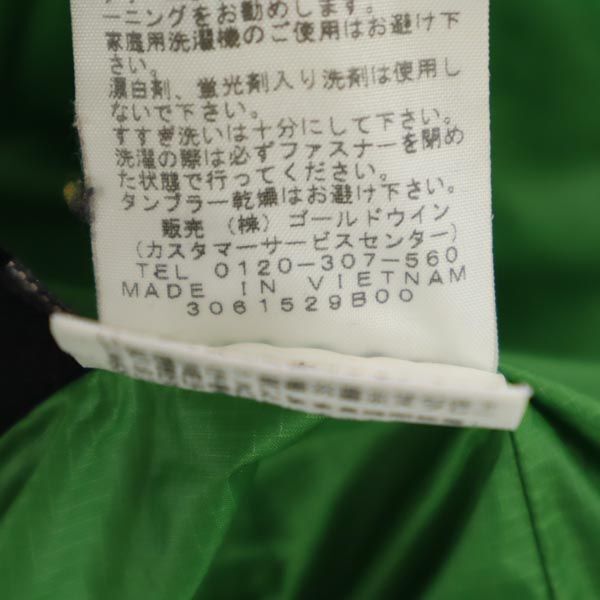 ーニングをお勧めします。
家庭用洗濯機のご使用はお避け下
さい。
漂白剤、蛍光剤入り洗剤は使用し
ないで下さい。
すすぎ洗いは十分にして下さい。
洗濯の際は必ずファスナーを閉め
た状態で行ってください。
タンブラー乾燥はお避け下さい。
販売 (株) ゴールドウイン
(カスタマーサービスセンター)
TEL 0120-307-560
MADE IN VIETNAM
3061529B00